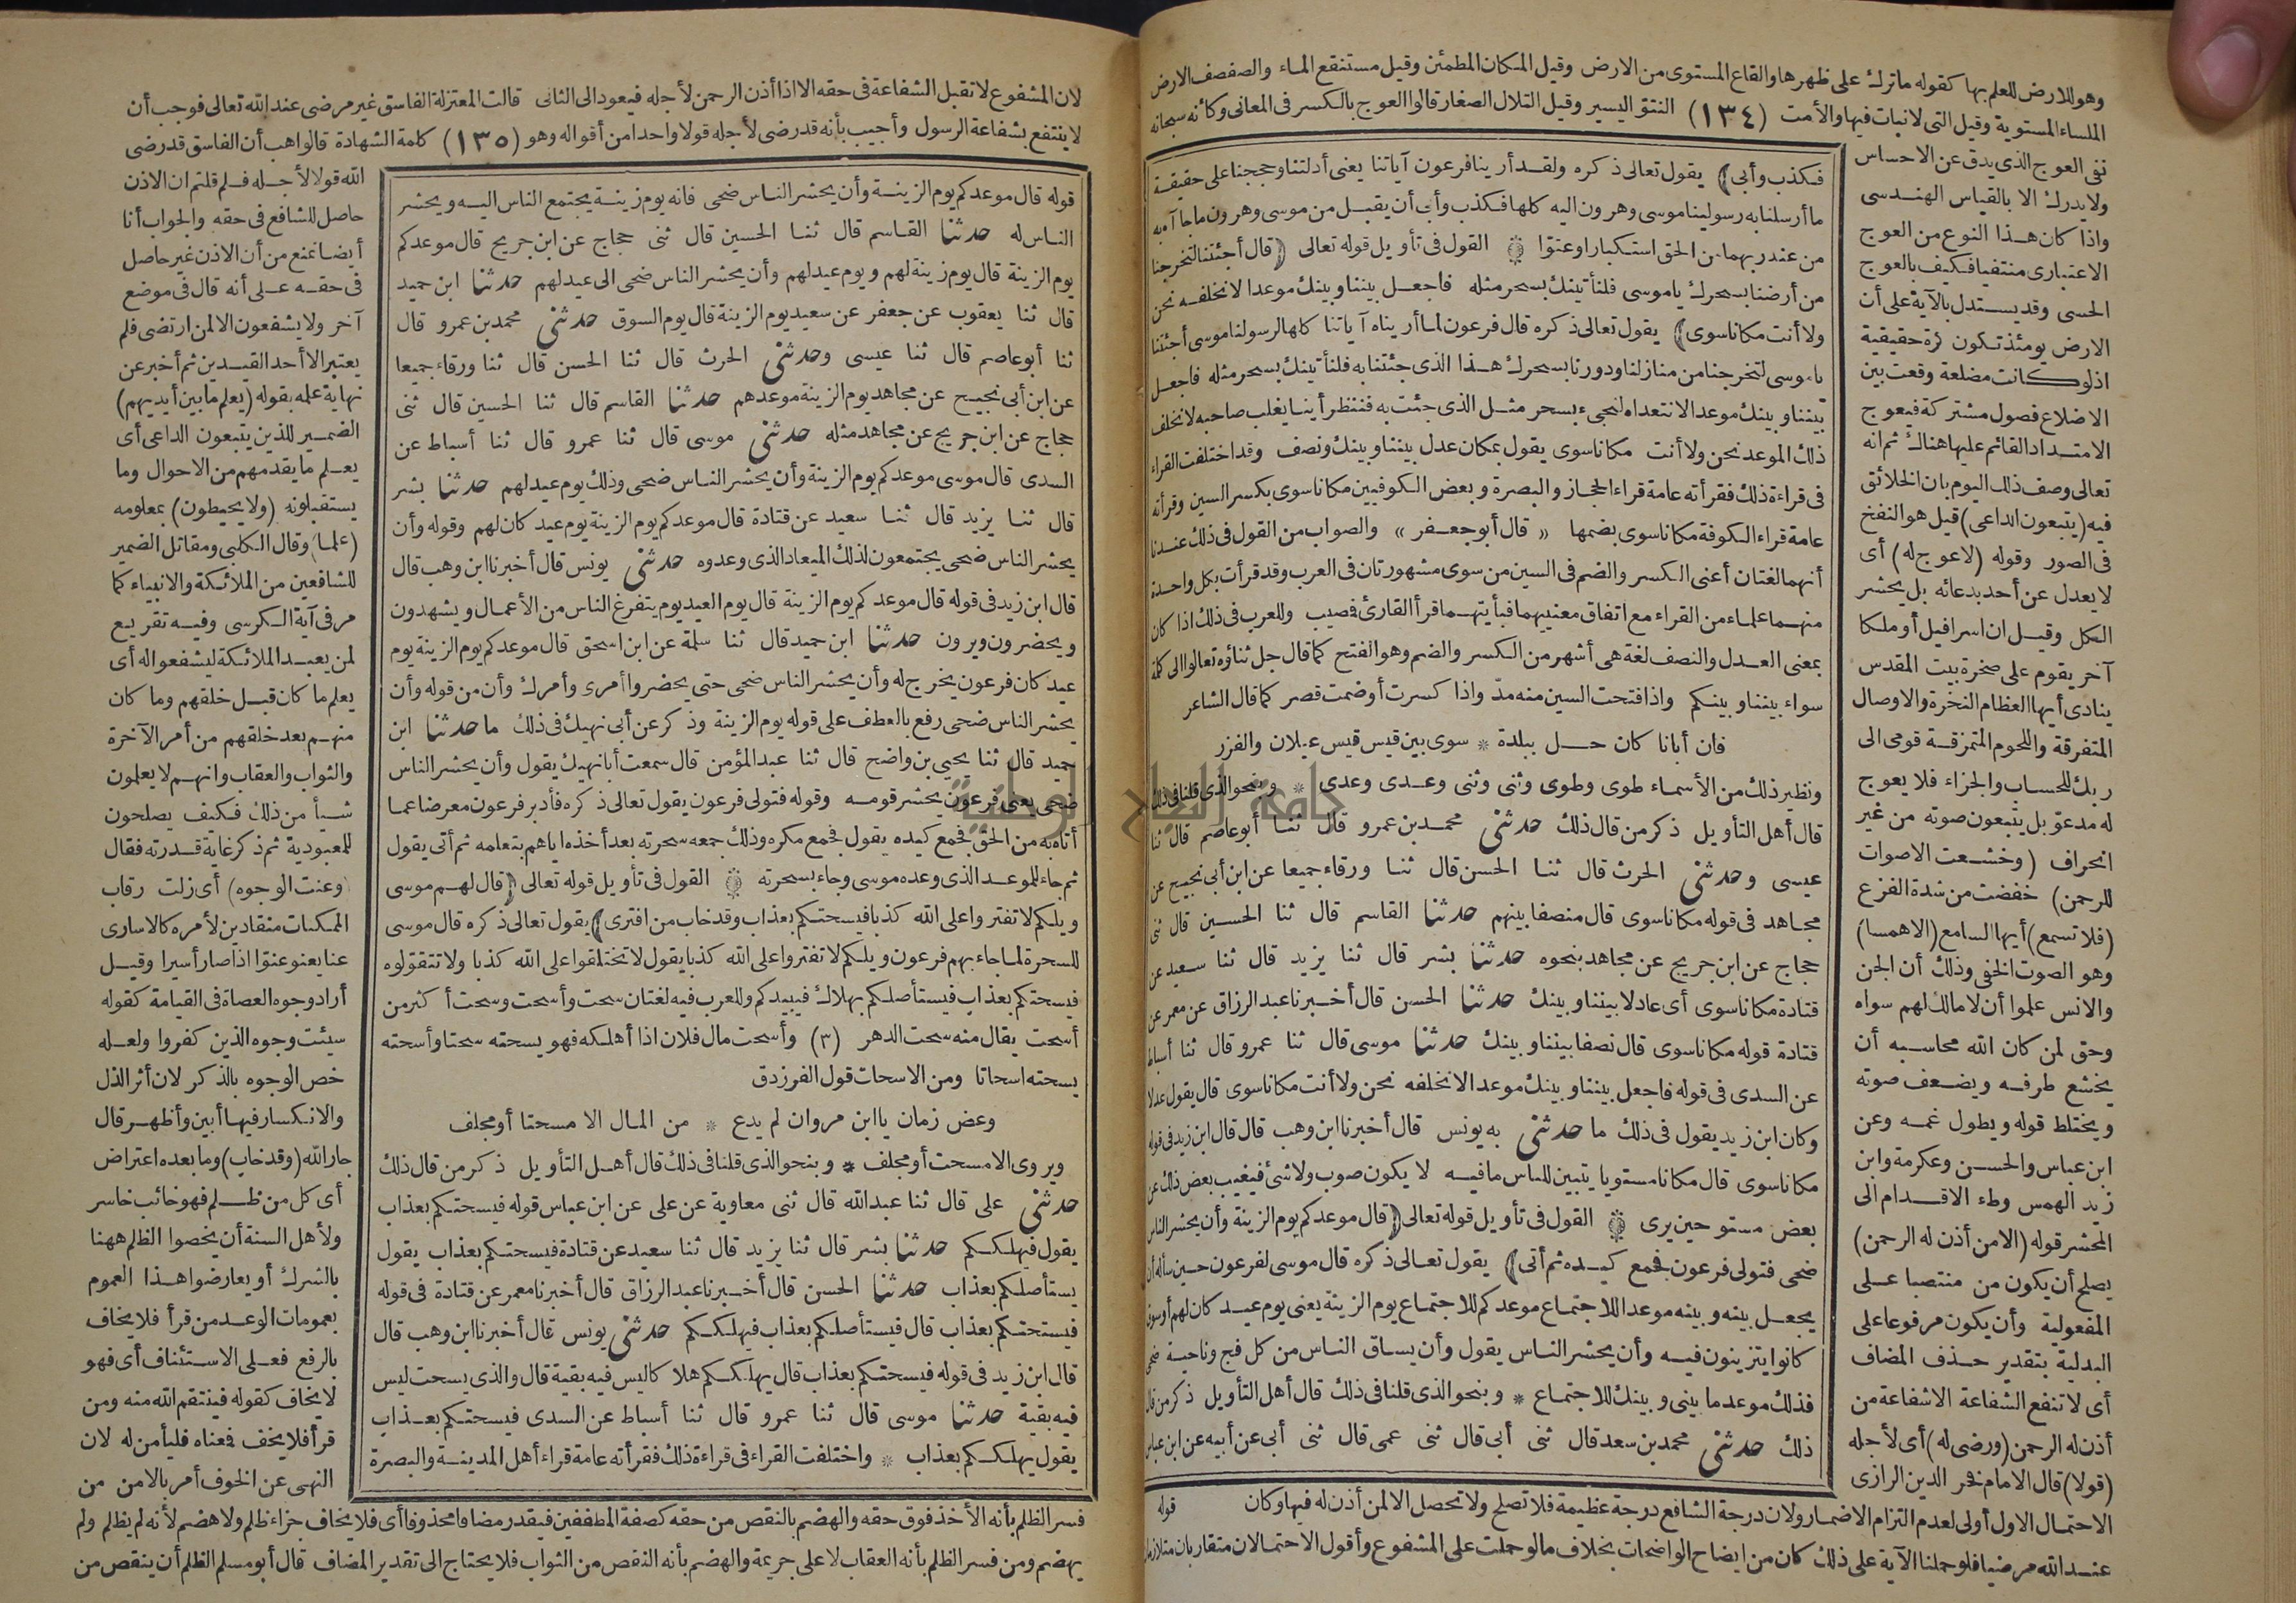 وهو للارض للعلم بها كقوله ماترك على ظهرها والقاع المستوى من الارض وقيل المكان المطمئن وقيل مستنقع الماء والصفصف الارض
الملساء المستوية وقيل التى لانبات فيها والأمت (١٣٤) النتؤ اليسير وقيل التلال الصغار قالوا العوج بالكسر فى المعانى وكأنه سبحانه
نفى العوج الذى يدق عن الاحساس
ولا يدرك الا بالقياس الهندسى
واذا كان هذا النوع من العوج
الاعتبارى منتفيا فكيف بالعوج
الحسى وقد يستدل بالآية على أن
الارض يومئذ تكون كرة حقيقية
اذ لو كانت مضلعة وقعت بين
الاضلاع فصول مشتركة فيعوج
الامتداد القائم عليها هناك ثم انه
تعالى وصف ذلك اليوم بان الخلائق
فيه (يتبعون الداعى) قيل هو النفخ
فى الصور وقوله (لاعوج له) أى
لا يعدل عن أحد بدعائه بل يحشر
الكل وقيل ان اسرافيل أو ملكا
آخر يقوم على صخرة بيت المقدس
ينادى أيها العظام النخرة والاوصال
المتفرقة واللحوم المتمزقة قومى الى
ربك للحساب والجزاء فلا يعوج
له مدعو بل يتبعون صوته من غير
انحراف (وخشعت الاصوات
للرحمن) خفضت من شدة الفزع
(فلا تسمع) أيها السامع (الا همسا)
وهو الصوت الخفى وذلك أن الجن
والانس علموا أن لا مالك لهم سواه
وحق لمن كان الله محاسبه أن
يخشع طرفه ويضعف صوته
ويختلط قوله ويطول غمه وعن
ابن عباس والحسن وعكرمة وابن
زيد الهمس وطء الاقدام الى
المحشر قوله (الا من أذن له الرحمن)
يصلح أن يكون من منتصبا على
المفعولية وأن يكون مرفوعا على
البدلية بتقدير حذف المضاف
أى لا تنفع الشفاعة الا شفاعة من
أذن له الرحمن (ورضى له) أى لأجله
(قولا) قال الامام فخر الدين الرازى
فكذب وأبى) يقول تعالى ذكره ولقد أرينا فرعون آياتنا يعنى أدلتنا وحججنا على حقيقة
ما أرسلنا به رسولينا موسى وهرون اليه كلها فكذب وأبى أن يقبل من موسى وهرون ما جاآ به
من عند ربهما من الحق استكبارا وعتوا ۞ القول فى تأويل قوله تعالى (قال أجئتنا لتخرجنا
من أرضنا بسحرك ياموسى فلنأتينك بسحر مثله فاجعل بيننا وبينك موعدا لا نخلفه نحن
ولا أنت مكانا سوى) يقول تعالى ذكره قال فرعون لما أريناه آياتنا كلها لرسولنا موسى أجئتنا
ياموسى لتخرجنا من منازلنا ودورنا بسحرك هذا الذى جئتنا به فلنأتينك بسحر مثله فاجعل
بيننا وبينك موعدا لا نتعداه لنجىء بسحر مثل الذى جئت به فننظر أينا يغلب صاحبه لا نخلف
ذلك الموعد نحن ولا أنت مكانا سوى يقول بمكان عدل بيننا وبينك ونصف وقد اختلفت القراء
فى قراءة ذلك فقرأته عامة قراء الحجاز والبصرة وبعض الكوفيين مكانا سوى بكسر السين وقرأته
عامة قراء الكوفة مكانا سوى بضمها « قال أبو جعفر » والصواب من القول فى ذلك عندنا
أنهما لغتان أعنى الكسر والضم فى السين من سوى مشهورتان فى العرب وقد قرأت بكل واحدة
منهما علماء من القراء مع اتفاق معنييهما فبأيتهما قرأ القارئ فمصيب وللعرب فى ذلك اذا كان
بمعنى العدل والنصف لغة هى أشهر من الكسر والضم وهو الفتح كما قال جل ثناؤه تعالوا الى كلمة
سواء بيننا وبينكم واذا فتحت السين منه مد واذا كسرت أو ضمت قصر كما قال الشاعر
فان أبانا كان حل ببلدة * سوى بين قيس قيس عيلان والفزر
ونظير ذلك من الأسماء طوى وطوى وثنى وثنى وعدى وعدى * وبنحو الذى قلنا فى ذلك
قال أهل التأويل ذكر من قال ذلك حدثنى محمد بن عمرو قال ثنا أبو عاصم قال ثنا
عيسى وحدثنى الحرث قال ثنا الحسن قال ثنا ورقاء جميعا عن ابن أبى نجيح عن
مجاهد فى قوله مكانا سوى قال منصفا بينهم حدثنا القاسم قال ثنا الحسين قال ثنى
حجاج عن ابن جريج عن مجاهد بنحوه حدثنا بشر قال ثنا يزيد قال ثنا سعيد عن
قتادة مكانا سوى أى عادلا بيننا وبينك حدثنا الحسن قال أخبرنا عبد الرزاق عن معمر عن
قتادة قوله مكانا سوى قال نصفا بيننا وبينك حدثنا موسى قال ثنا عمرو قال ثنا أسباط
عن السدى فى قوله فاجعل بيننا وبينك موعدا لا نخلفه نحن ولا أنت مكانا سوى قال يقول عدلا
وكان ابن زيد يقول فى ذلك ما حدثنى به يونس قال أخبرنا ابن وهب قال قال ابن زيد فى قوله
مكانا سوى قال مكانا مستويا يتبين للناس ما فيه لا يكون صوب ولا شئ فيغيب بعض ذلك عن
بعض مستو حين يرى ۞ القول فى تأويل قوله تعالى (قال موعدكم يوم الزينة وأن يحشر الناس
ضحى فتولى فرعون فجمع كيده ثم أتى) يقول تعالى ذكره قال موسى لفرعون حين سأله أن
يجعل بينه وبينه موعدا للاجتماع موعدكم للاجتماع يوم الزينة يعنى يوم عيد كان لهم أو سوق
كانوا يتزينون فيه وأن يحشر الناس يقول وأن يساق الناس من كل فج وناحية ضحى
فذلك موعد ما بينى وبينك للاجتماع * وبنحو الذى قلنا فى ذلك قال أهل التأويل ذكر من قال
ذلك حدثنى محمد بن سعد قال ثنى أبى قال ثنى عمى قال ثنى أبى عن أبيه عن ابن عباس
الاحتمال الاول أولى لعدم التزام الاضمار ولان درجة الشافع درجة عظيمة فلا تصلح ولا تحصل الا لمن أذن له فيها وكان قوله
عند الله مرضيا فلو حملنا الآية على ذلك كان من ايضاح الواضحات بخلاف ما لو حملت على المشفوع وأقول الاحتمالان متقاربان متلازمان
لان المشفوع لا تقبل الشفاعة فى حقه الا اذا أذن الرحمن لأجله فيعود الى الثانى قالت المعتزلة الفاسق غير مرضى عند الله تعالى فوجب أن
لا ينتفع بشفاعة الرسول وأجيب بأنه قد رضى لأجله قولا واحدا من أقواله وهو (١٣٥) كلمة الشهادة قالوا هب أن الفاسق قد رضى
قوله قال موعدكم يوم الزينة وأن يحشر الناس ضحى فانه يوم زينة يجتمع الناس اليه ويحشر
الناس له حدثنا القاسم قال ثنا الحسين قال ثنى حجاج عن ابن جريج قال موعدكم
يوم الزينة قال يوم زينة لهم ويوم عيد لهم وأن يحشر الناس ضحى الى عيد لهم حدثنا ابن حميد
قال ثنا يعقوب عن جعفر عن سعيد يوم الزينة قال يوم السوق حدثنى محمد بن عمرو قال
ثنا أبو عاصم قال ثنا عيسى وحدثنى الحرث قال ثنا الحسن قال ثنا ورقاء جميعا
عن ابن أبى نجيح عن مجاهد يوم الزينة موعدهم حدثنا القاسم قال ثنا الحسين قال ثنى
حجاج عن ابن جريج عن مجاهد مثله حدثنى موسى قال ثنا عمرو قال ثنا أسباط عن
السدى قال موسى موعدكم يوم الزينة وأن يحشر الناس ضحى وذلك يوم عيد لهم حدثنا بشر
قال ثنا يزيد قال ثنا سعيد عن قتادة قال موعدكم يوم الزينة يوم عيد كان لهم وقوله وأن
يحشر الناس ضحى يجتمعون لذلك الميعاد الذى وعدوه حدثنى يونس قال أخبرنا ابن وهب قال
قال ابن زيد فى قوله قال موعدكم يوم الزينة قال يوم العيد يوم يتفرغ الناس من الأعمال ويشهدون
ويحضرون ويرون حدثنا ابن حميد قال ثنا سلمة عن ابن اسحق قال موعدكم يوم الزينة يوم
عيد كان فرعون يخرج له وأن يحشر الناس ضحى حتى يحضروا أمرى وأمرك وأن من قوله وأن
يحشر الناس ضحى رفع بالعطف على قوله يوم الزينة وذكر عن أبى نهيك فى ذلك ما حدثنا ابن
حميد قال ثنا يحيى بن واضح قال ثنا عبد المؤمن قال سمعت أبا نهيك يقول وأن يحشر الناس
ضحى يعنى فرعون يحشر قومه وقوله فتولى فرعون يقول تعالى ذكره فأدبر فرعون معرضا عما
أتاه به من الحق فجمع كيده يقول فجمع مكره وذلك جمعه سحرته بعد أخذه اياهم بتعلمه ثم أتى يقول
ثم جاء للموعد الذى وعده موسى وجاء بسحرته ۞ القول فى تأويل قوله تعالى (قال لهم موسى
ويلكم لا تفتروا على الله كذبا فيسحتكم بعذاب وقد خاب من افترى) يقول تعالى ذكره قال موسى
للسحرة لما جاء بهم فرعون ويلكم لا تفتروا على الله كذبا يقول لا تختلقوا على الله كذبا ولا تتقولوه
فيسحتكم بعذاب فيستأصلكم بهلاك فيبيدكم وللعرب فيه لغتان سحت وأسحت وسحت أكثر من
أسحت يقال منه سحت الدهر (٣) وأسحت مال فلان اذا أهلكه فهو يسحته سحتا وأسحته
يسحته اسحاتا ومن الاسحات قول الفرزدق
وعض زمان يا ابن مروان لم يدع * من المال الا مسحتا أو مجلف
ويروى الا مسحت أو مجلف * وبنحو الذى قلنا فى ذلك قال أهل التأويل ذكر من قال ذلك
حدثنى على قال ثنا عبد الله قال ثنى معاوية عن على عن ابن عباس قوله فيسحتكم بعذاب
يقول فيهلككم حدثنا بشر قال ثنا يزيد قال ثنا سعيد عن قتادة فيسحتكم بعذاب يقول
يستأصلكم بعذاب حدثنا الحسن قال أخبرنا عبد الرزاق قال أخبرنا معمر عن قتادة فى قوله
فيستحتكم بعذاب قال فيستأصلكم بعذاب فيهلككم حدثنى يونس قال أخبرنا ابن وهب قال
قال ابن زيد فى قوله فيسحتكم بعذاب قال يهلككم هلاكا ليس فيه بقية قال والذى يسحت ليس
فيه بقية حدثنا موسى قال ثنا عمرو قال ثنا أسباط عن السدى فيسحتكم بعذاب
يقول يهلككم بعذاب * واختلفت القراء فى قراءة ذلك فقرأته عامة قراء أهل المدينة والبصرة
الله قولا لأجله فلم قلتم ان الاذن
حاصل للشافع فى حقه والجواب أنا
أيضا نمنع من أن الاذن غير حاصل
فى حقه على أنه قال فى موضع
آخر ولا يشفعون الا لمن ارتضى فلم
يعتبر الا أحد القيدين ثم أخبر عن
نهاية علمه بقوله (يعلم ما بين أيديهم)
الضمير للذين يتبعون الداعى أى
يعلم ما يقدمهم من الاحوال وما
يستقبلونه (ولا يحيطون) بمعلومه
(علما) وقال الكلبى ومقاتل الضمير
للشافعين من الملائكة والانبياء كما
مر فى آية الكرسى وفيه تقريع
لمن يعبد الملائكة ليشفعوا له أى
يعلم ما كان قبل خلقهم وما كان
منهم بعد خلقهم من أمر الآخرة
والثواب والعقاب وانهم لا يعلمون
شيأ من ذلك فكيف يصلحون
للمعبودية ثم ذكر غاية قدرته فقال
(وعنت الوجوه) أى زلت رقاب
الممكنات منقادين لأمره كالاسارى
عنا يعنو عنوا اذا صار أسيرا وقيل
أراد وجوه العصاة فى القيامة كقوله
سيئت وجوه الذين كفروا ولعله
خص الوجوه بالذكر لان أثر الذل
والانكسار فيها أبين وأظهر قال
جار الله (وقد خاب) وما بعده اعتراض
أى كل من ظلم فهو خائب خاسر
ولأهل السنة أن يخصوا الظلم ههنا
بالشرك أو يعارضوا هذا العموم
بعمومات الوعد من قرأ فلا يخاف
بالرفع فعلى الاستئناف أى فهو
لا يخاف كقوله فينتقم الله منه ومن
قرأ فلا يخف فمعناه فليأمن له لان
النهى عن الخوف أمر بالامن من
فسر الظلم بأنه الأخذ فوق حقه والهضم بالنقص من حقه كصفة المطففين فيقدر مضافا محذوفا أى فلا يخاف جزاء ظلم ولا هضم لأنه لم يظلم ولم
يهضم ومن فسر الظلم بأنه العقاب لا على جريمة والهضم بأنه النقص من الثواب فلا يحتاج الى تقدير المضاف قال أبو مسلم الظلم أن ينقص من
جامعة النجاح الوطنية